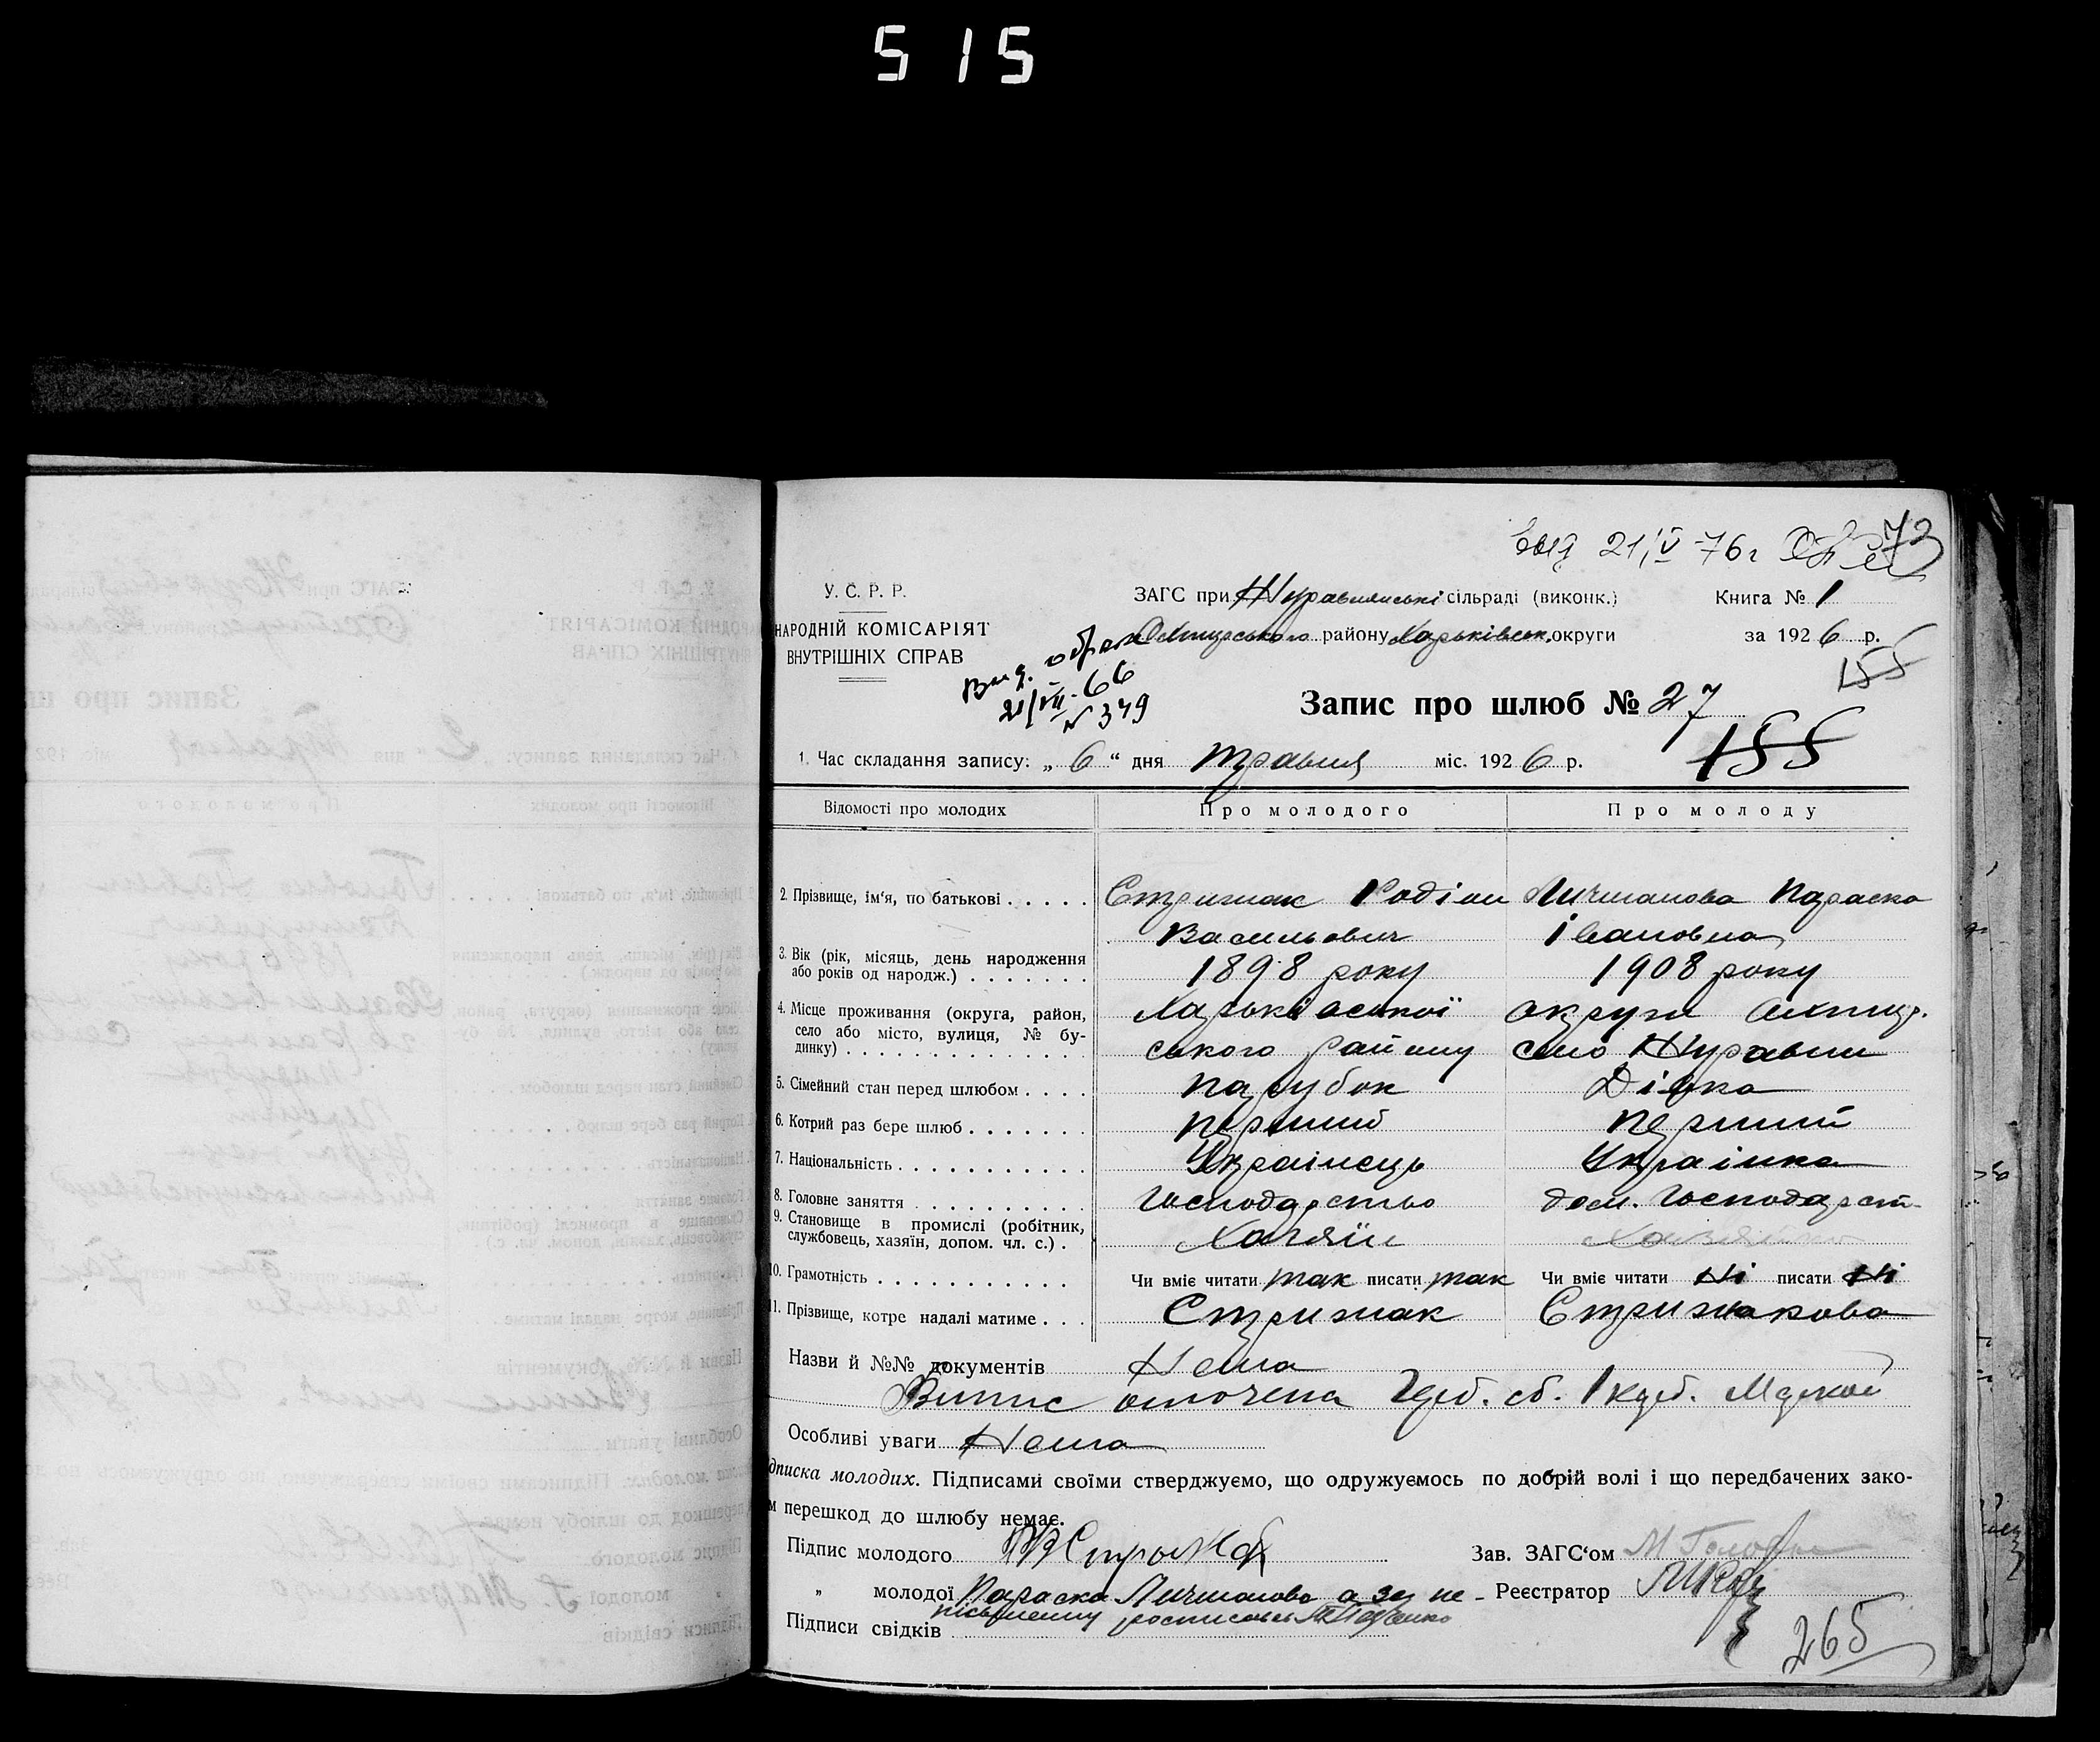 515
выд 21/V-76г
73
У. С. Р. Р.
НАРОДНІЙ КОМІСАРІЯТ
ВНУТРІШНІХ СПРАВ
ЗАГС при Журавлянські сільраді (виконк.)
Охтирського району Харьківськ. округи
Книга № 1
за 1926 р.
155
Выд.
21/VII-66
N 349
Запис про шлюб № 27
155
1. Час складання запису: „6“ дня травня міс. 1926 р.
Відомості про молодих Про молодого Про молоду
2. Прізвище, ім‘я, по батькові . . . . . Стрижак Родіон Личманова Параска
Васильович Івановна
3. Вік (рік, місяць, день народження
або років од народж.) . . . . . . . 1898 року 1908 року
4. Місце проживання (округа, район, Харьківської округи Охтир.
село або місто, вулиця, № бу-
динку) . . . . . . . . . . . . . . ського району село Журавни
5. Сімейний стан перед шлюбом . . . . парубок Дівка
6. Котрий раз бере шлюб . . . . . . . перший перший
7. Національність . . . . . . . . . . . Українець Українка
8. Головне заняття . . . . . . . . . . Господарство дом. Господарст-
9. Становище в промислі (робітник,
службовець, хазяїн, допом. чл. с.) . Хазяїн Хазяйка
10. Грамотність . . . . . . . . . . . Чи вміє читати так писати так Чи вміє читати Ні писати Ні
11. Прізвище, котре надалі матиме . . . Стрижак Стрижакова
Назви й №№ документів Нема
Випис
Особливі уваги Нема
дписка молодих. Підписами своїми стверджуємо, що одружуємось по добрій волі і що передбачених зако-
м перешкод до шлюбу немає.
Підпис молодого Зав. ЗАГС‘ом
„ молодої Параска Личманова а за не- Реєстратор
письменну росписався
Підписи свідків
265